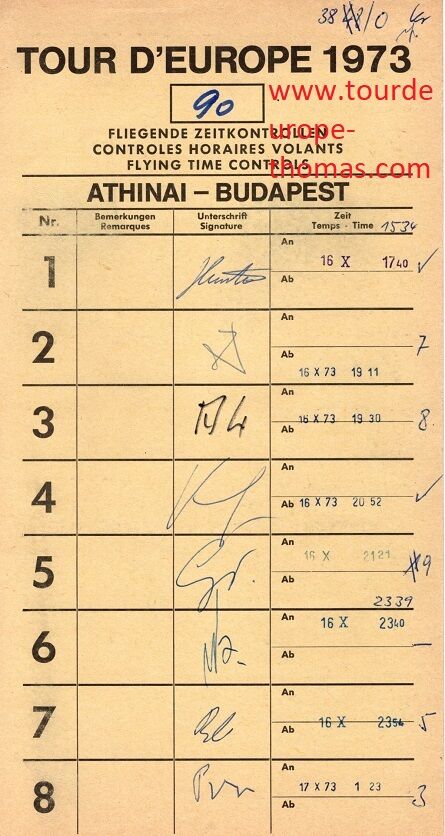 38
TOUR D'EUROPE 1973
www.tourde
urope-
thomas.com
90
FLIEGENDE ZEITKONTROLLEN
CONTROLES HORAIRES VOLANTS
FLYING TIME CONTROLS
ATHINAI – BUDAPEST
Nr. Bemerkungen Unterschrift Zeit
Remarques Signature Temps - Time 1534
1 An 16 X 1740 ✓
Ab
2 An 7
Ab
16 X 73 19 11
3 An 16 X 73 19 30 8.
Ab
4 An ✓
Ab 16 X 73 20 52
5 An 16 X 2121 9
Ab
2339
6 An 16 X 2340 –
Ab
7 An 5
Ab 16 X 2354
8 An 17 X 73 1 23 3
Ab